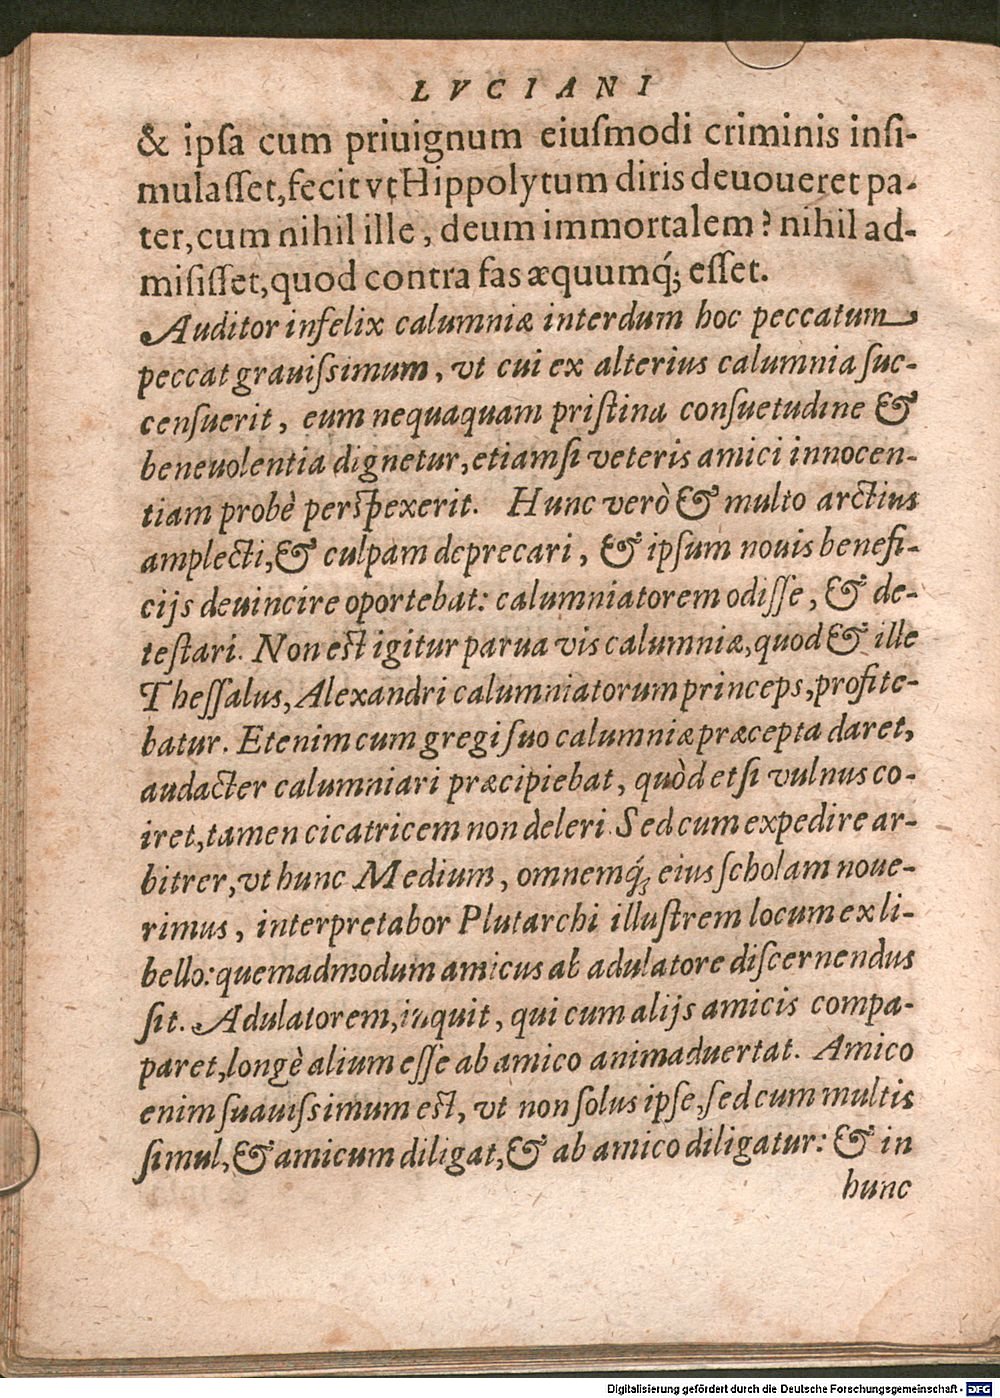 LVCIANI
& ipsa cum priuignum eiuſmodi criminis inſi-
mulaſſet, fecit vt Hippolytum diris deuoueret pa-
ter, cum nihil ille, deum immortalem? nihil ad-
miſiſſet, quod contra fas æquumq́; eſſet.
Auditor infelix calumniæ interdum hoc peccatum
peccat grauiſsimum, vt cui ex alterius calumnia ſuc-
cenſuerit, eum nequaquam priſtina conſuetudine &
beneuolentia dignetur, etiamſi veteris amici innocen-
tiam probè perſpexerit. Hunc verò & multo arctius
amplecti, & culpam deprecari, & ipſum nouis benefi-
cijs deuincire oportebat: calumniatorem odiſſe, & de-
teſtari. Non eſt igitur parua vis calumniæ, quod & ille
Theſſalus, Alexandri calumniatorum princeps, profite-
batur. Etenim cum gregi ſuo calumniæ præcepta daret,
audacter calumniari præcipiebat, quòd etſi vulnus co-
iret, tamen cicatricem non deleri. Sed cum expedire ar-
bitrer, vt hunc Medium, omnemq́; eius ſcholam noue-
rimus, interpretabor Plutarchi illuſtrem locum ex li-
bello: quemadmodum amicus ab adulatore diſcernendus
ſit. Adulatorem, inquit, qui cum alijs amicis compa-
paret, longè alium eſſe ab amico animaduertat. Amico
enim ſuauiſsimum eſt, vt non ſolus ipſe, ſed cum multis
ſimul, & amicum diligat, & ab amico diligatur: & in
hunc
Digitalisierung gefördert durch die Deutsche Forschungsgemeinschaft - DFG